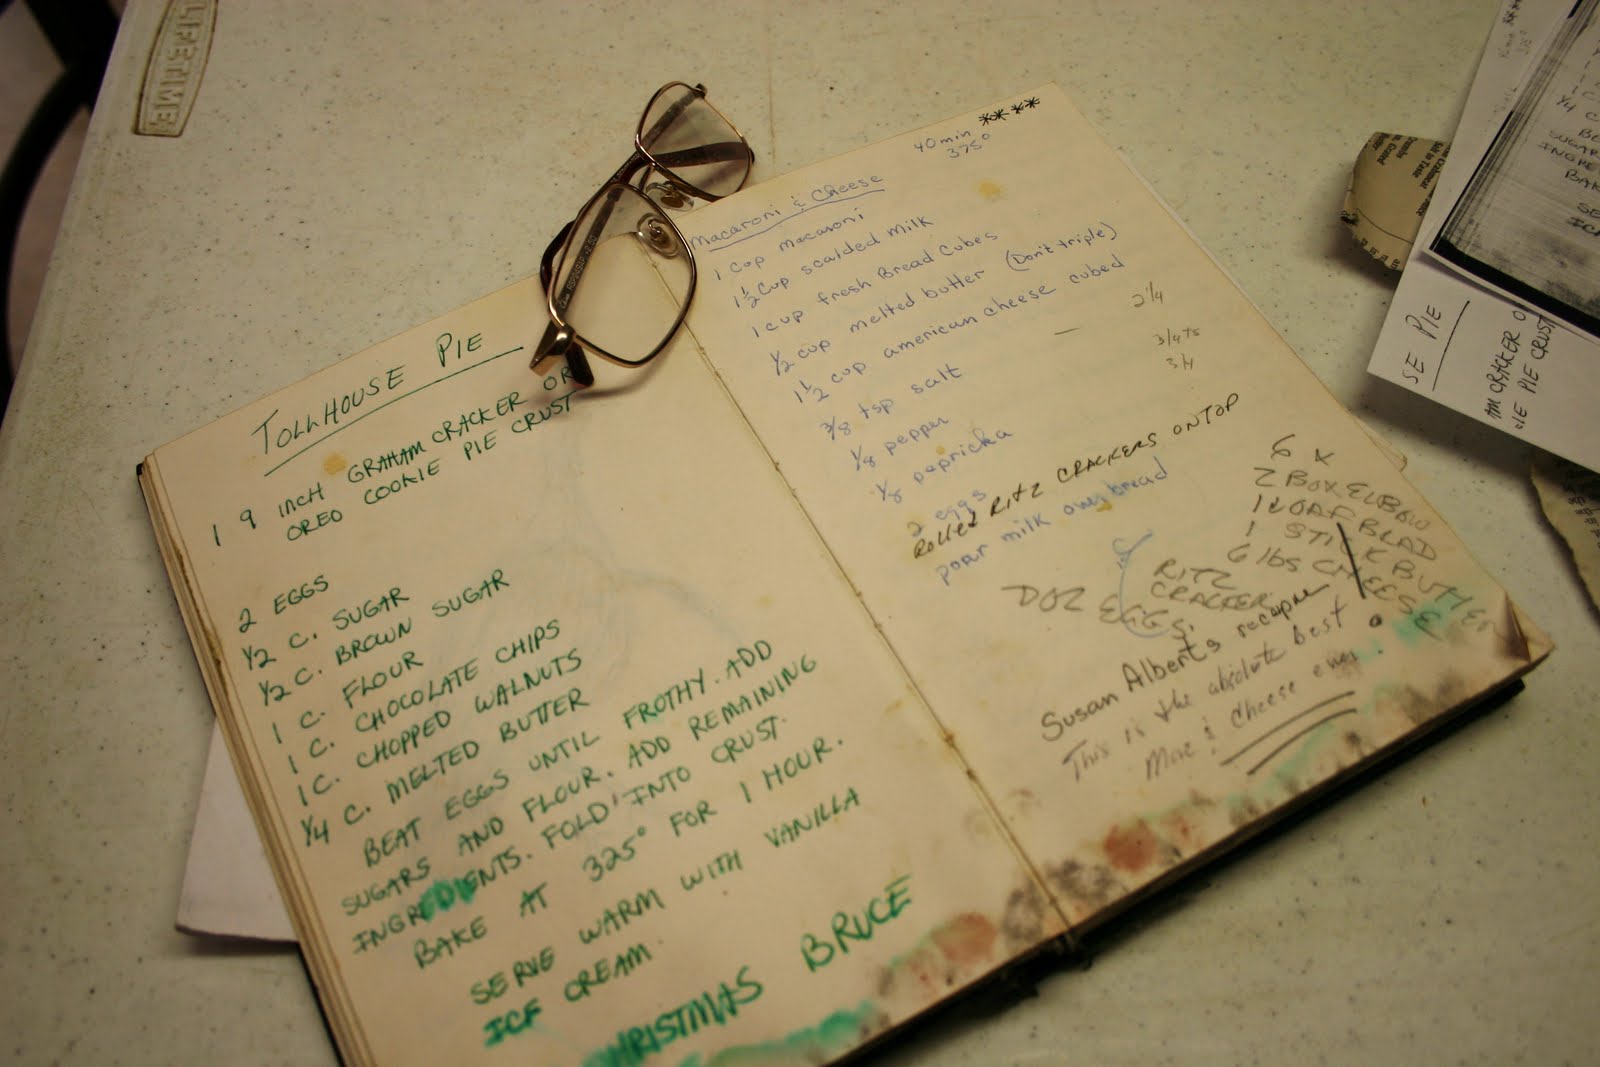 LIFETIME
TOLLHOUSE PIE
1 9 INCH GRAHAM CRACKER OR
OREO COOKIE PIE CRUST
2 EGGS
1/2 C. SUGAR
1/2 C. BROWN SUGAR
1 C. FLOUR
1 C. CHOCOLATE CHIPS
1 C. CHOPPED WALNUTS
1/4 C. MELTED BUTTER
BEAT EGGS UNTIL FROTHY. ADD
SUGARS AND FLOUR. ADD REMAINING
INGREDIENTS. FOLD INTO CRUST.
BAKE AT 325° FOR 1 HOUR.
SERVE WARM WITH VANILLA
ICE CREAM.
CHRISTMAS BRUCE
40 min ****
375°
Macaroni & Cheese
1 cup macaroni
1 1/2 cup scalded milk
1 cup fresh Bread Cubes
1/2 cup melted butter (Don't triple)
1 1/2 cup american cheese cubed
3/8 tsp salt — 2 1/4
1/8 pepper 3/4 ts
1/8 papricka 3/4
2 eggs
Rolled RITZ CRACKERS ON TOP
poar milk over bread
6 x
2 BOX ELBOW
1 LOAF BREAD
1 STICK BUTTER
6 lbs CHEESE
RITZ
CRACKER
DOZ EGGS.
Susan Alberts recipe
This is the absolute best
Mac & Cheese ever.
SE PIE
AM CRACKER O
IE PIE CRUST